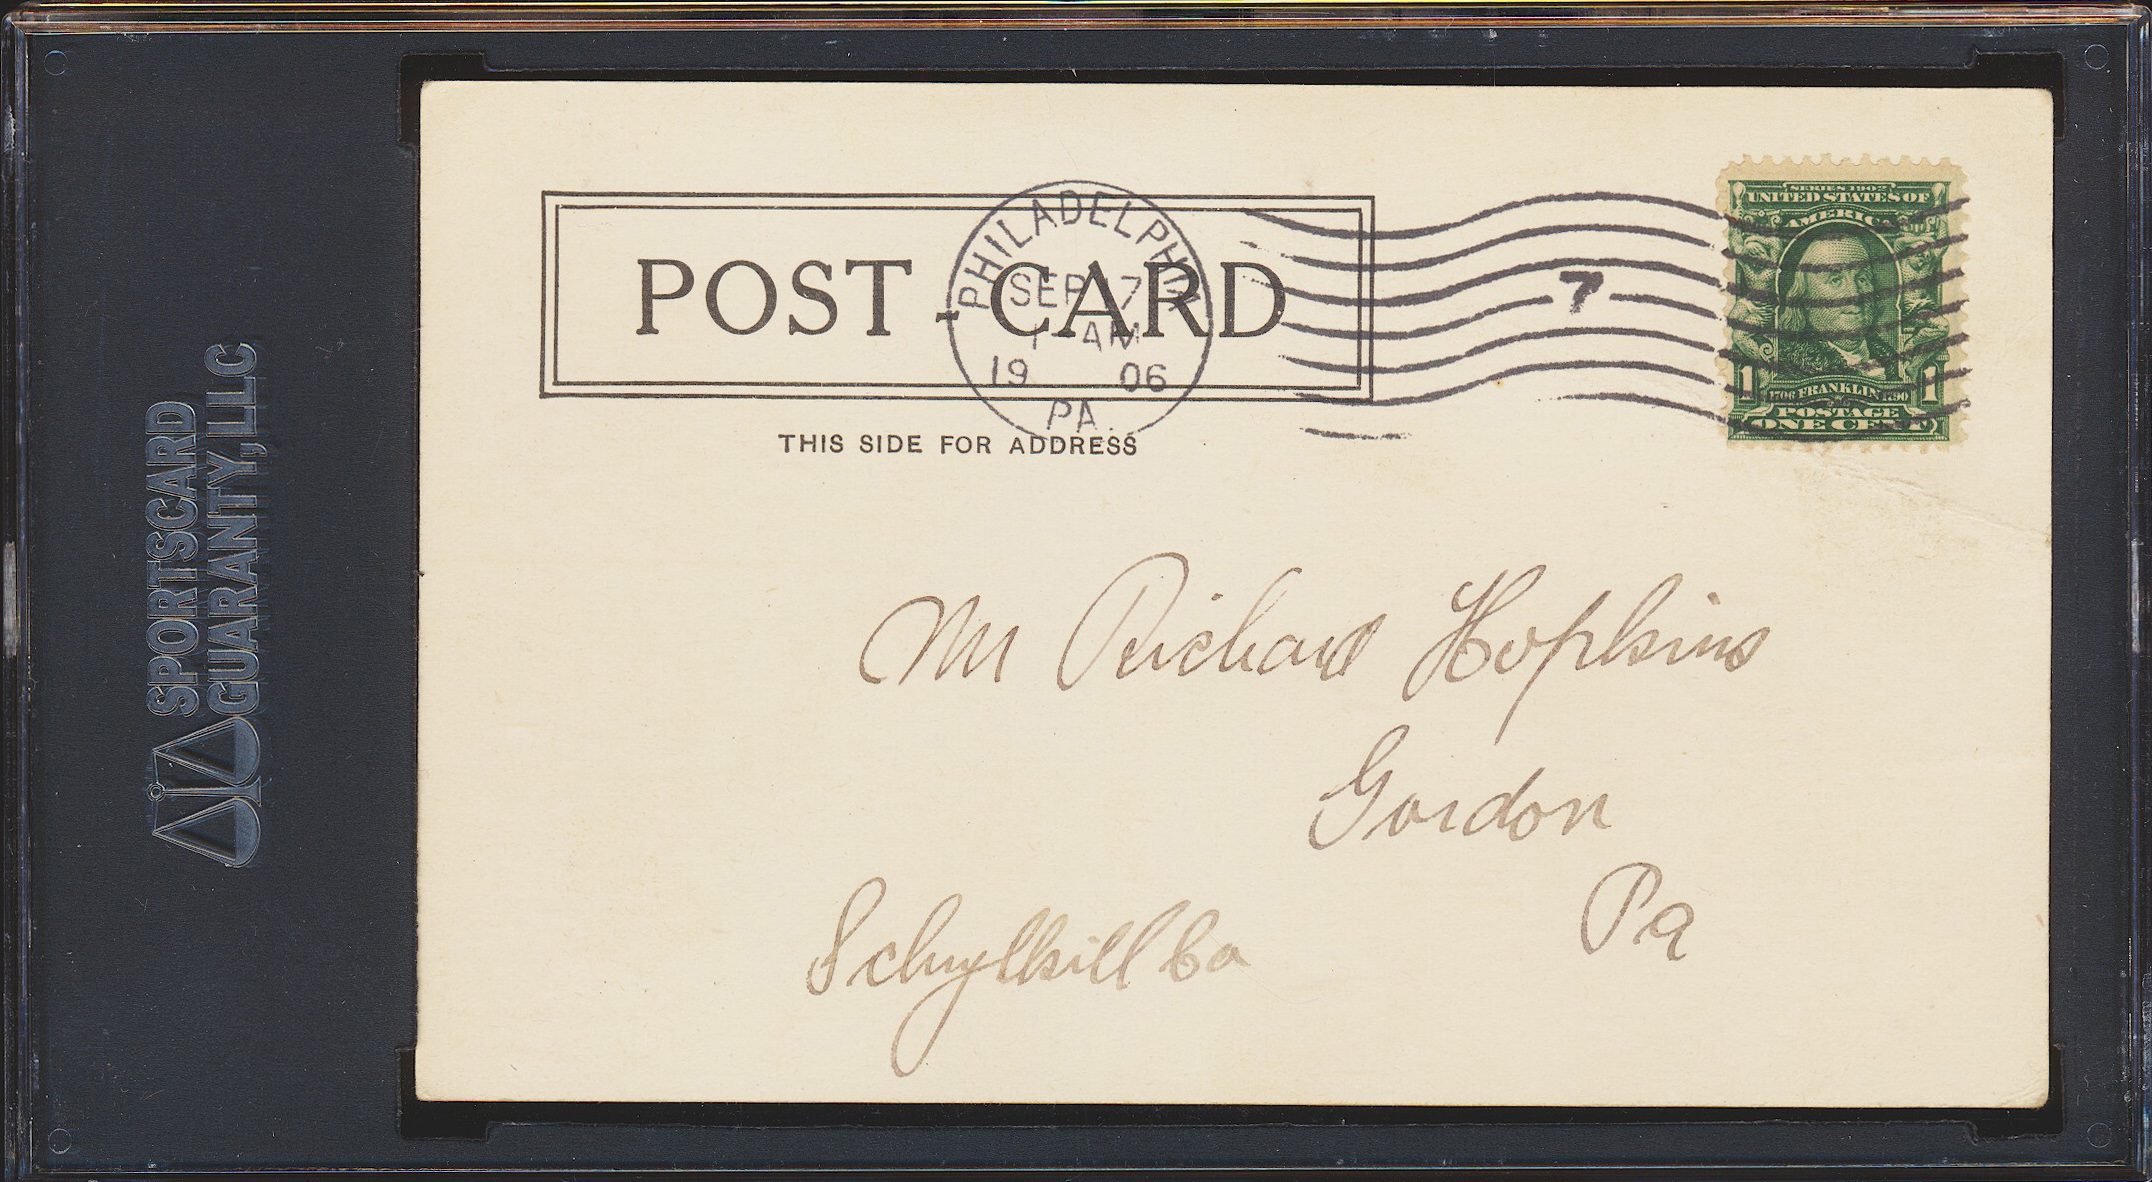 SPORTSCARD
GUARANTY, LLC
POST CARD
PHILADELPHIA
SEP 7
1 - AM
19 06
PA.
7
THIS SIDE FOR ADDRESS
SERIES 1902
UNITED STATES OF
AMERICA
1706 FRANKLIN 1790
1 1
POSTAGE
ONE CENT
Mr Richard Hopkins
Gordon
Pa
Schuylkill Co